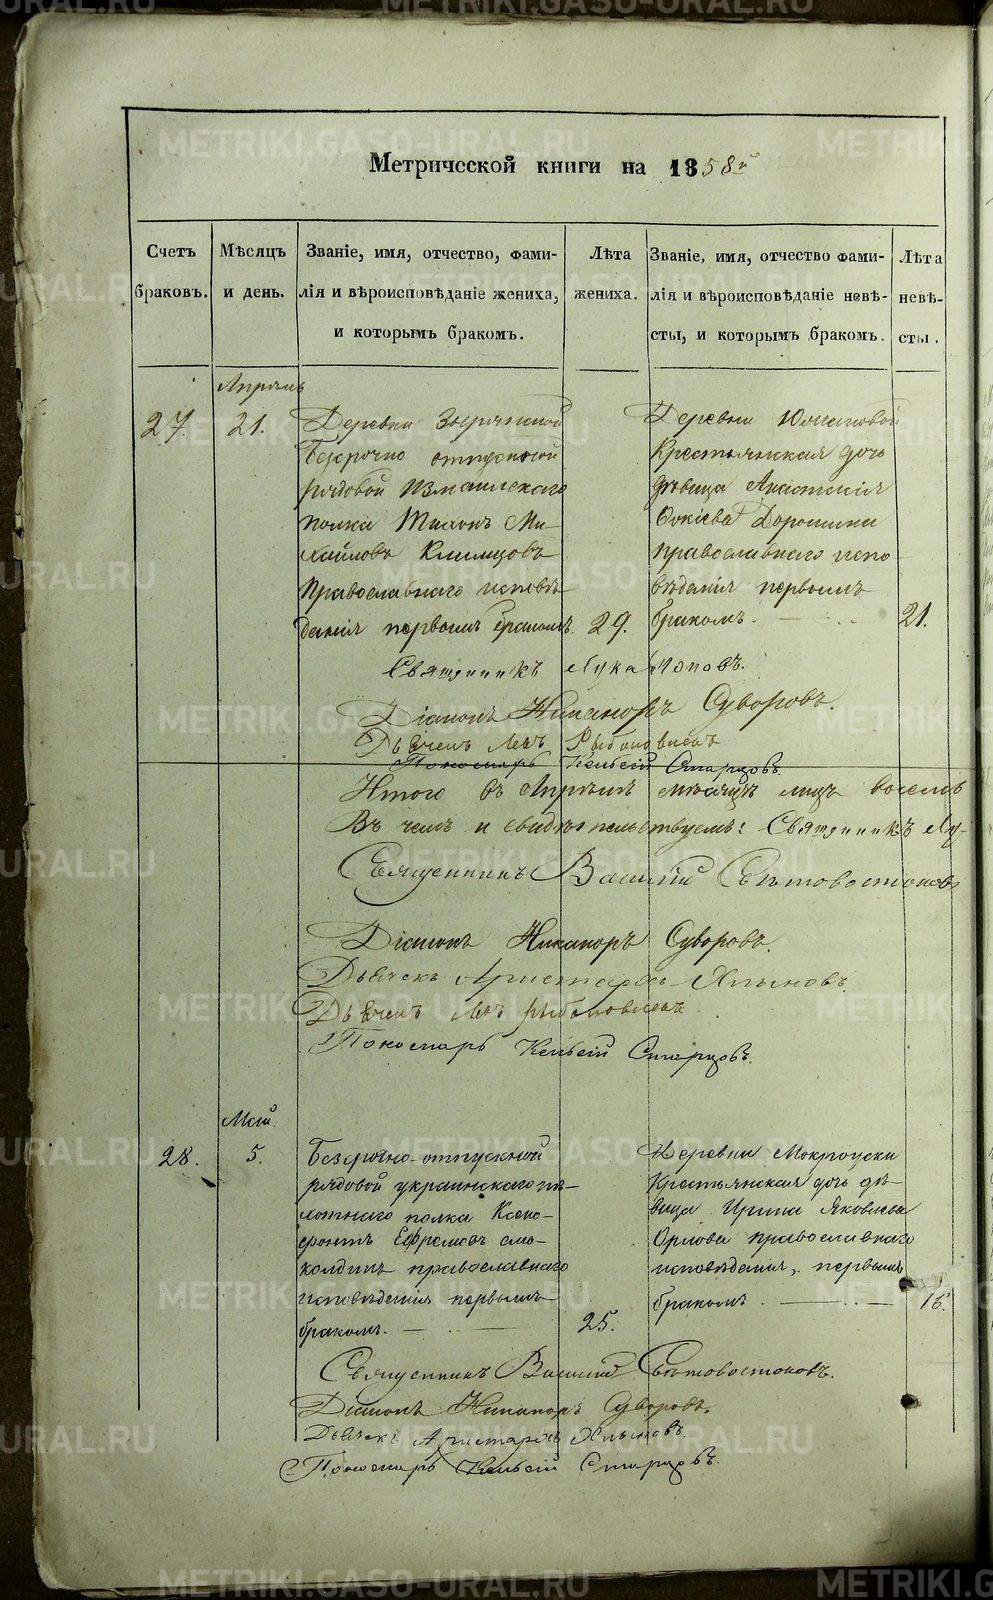 Метрической книги на 1858й
Счетъ браковъ.
Мѣсяцъ и день.
Званіе, имя, отчество, фами-
лія и вѣроисповѣданіе жениха,
и которымъ бракомъ.
Лѣта жениха.
Званіе, имя, отчество фами-
лія и вѣроисповѣданіе невѣ-
сты, и которымъ бракомъ.
Лѣта невѣ-
сты.
Апрѣль
27. 21.
Деревни Зырянской
Безсрочно отпускной
рядовой Измаилскаго
полка Тихонъ Ми-
хайловъ Клим
Православнаго исповѣ
данія первымъ бракомъ. 29.
Деревни
Крестьянская дочь
дѣвица Анастасія
Дорошина
православнаго испо
вѣданія первымъ
бракомъ. 21.
Священникъ Лука Поповъ.
Діаконъ Никаноръ Суворовъ.
Дьячекъ Левъ
Пономарь Старцовъ.
Итого въ Апрѣлѣ мѣсяцѣ лицъ восемь
Въ чемъ и свидѣтельствуемъ: Священникъ Лу-
Священникъ Василій Свѣтовостоковъ
Діаконъ Никаноръ Суворовъ.
Дьячекъ Аристархъ
Дьячекъ Левъ
Пономарь Старцовъ.
Май.
28. 5.
Безсрочно-отпускной
рядовой украинскаго пѣ-
хотнаго полка Ксено-
фонтъ Ефремовъ Смо-
колдинъ православнаго
исповѣданія первымъ
бракомъ. 25.
Деревни Мокроуски
Крестьянская дочь дѣ-
вица Ирина Яковлева
Орлова православнаго
исповѣданія, первымъ
бракомъ. 16.
Священникъ Василій Свѣтовостоковъ.
Діаконъ Никаноръ Суворовъ.
Дьячекъ Аристархъ
Пономарь Старцовъ.
METRIKI.GASO-URAL.RU